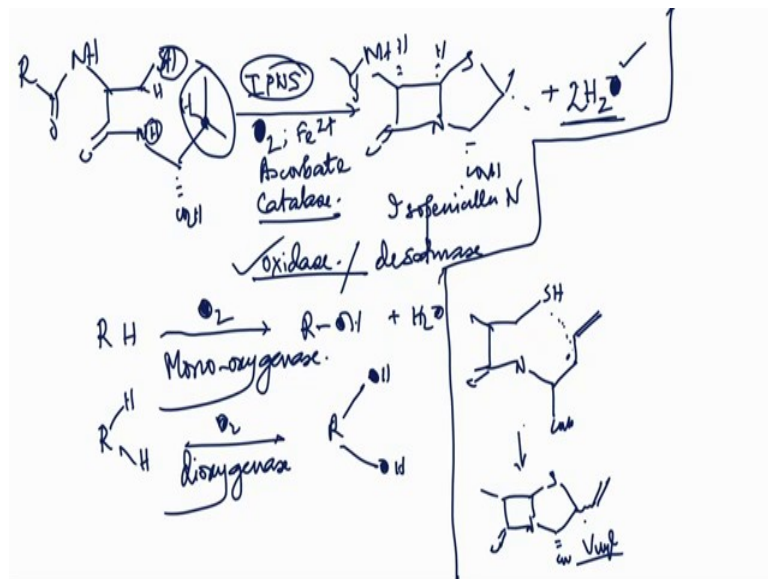 R
NH
SH
H
O
NH
H
COOH
IPNS
O2; Fe2+
Ascorbate
Catalase.
NH H H S
O
N
COOH
+ 2H2O
Isopenicillin N
oxidase. / desaturase
RH
O2
R-OH + H2O
Mono-oxygenase.
R
H
H
O2
dioxygenase
R
OH
OH
SH
O
N
S
N
O
Vinyl